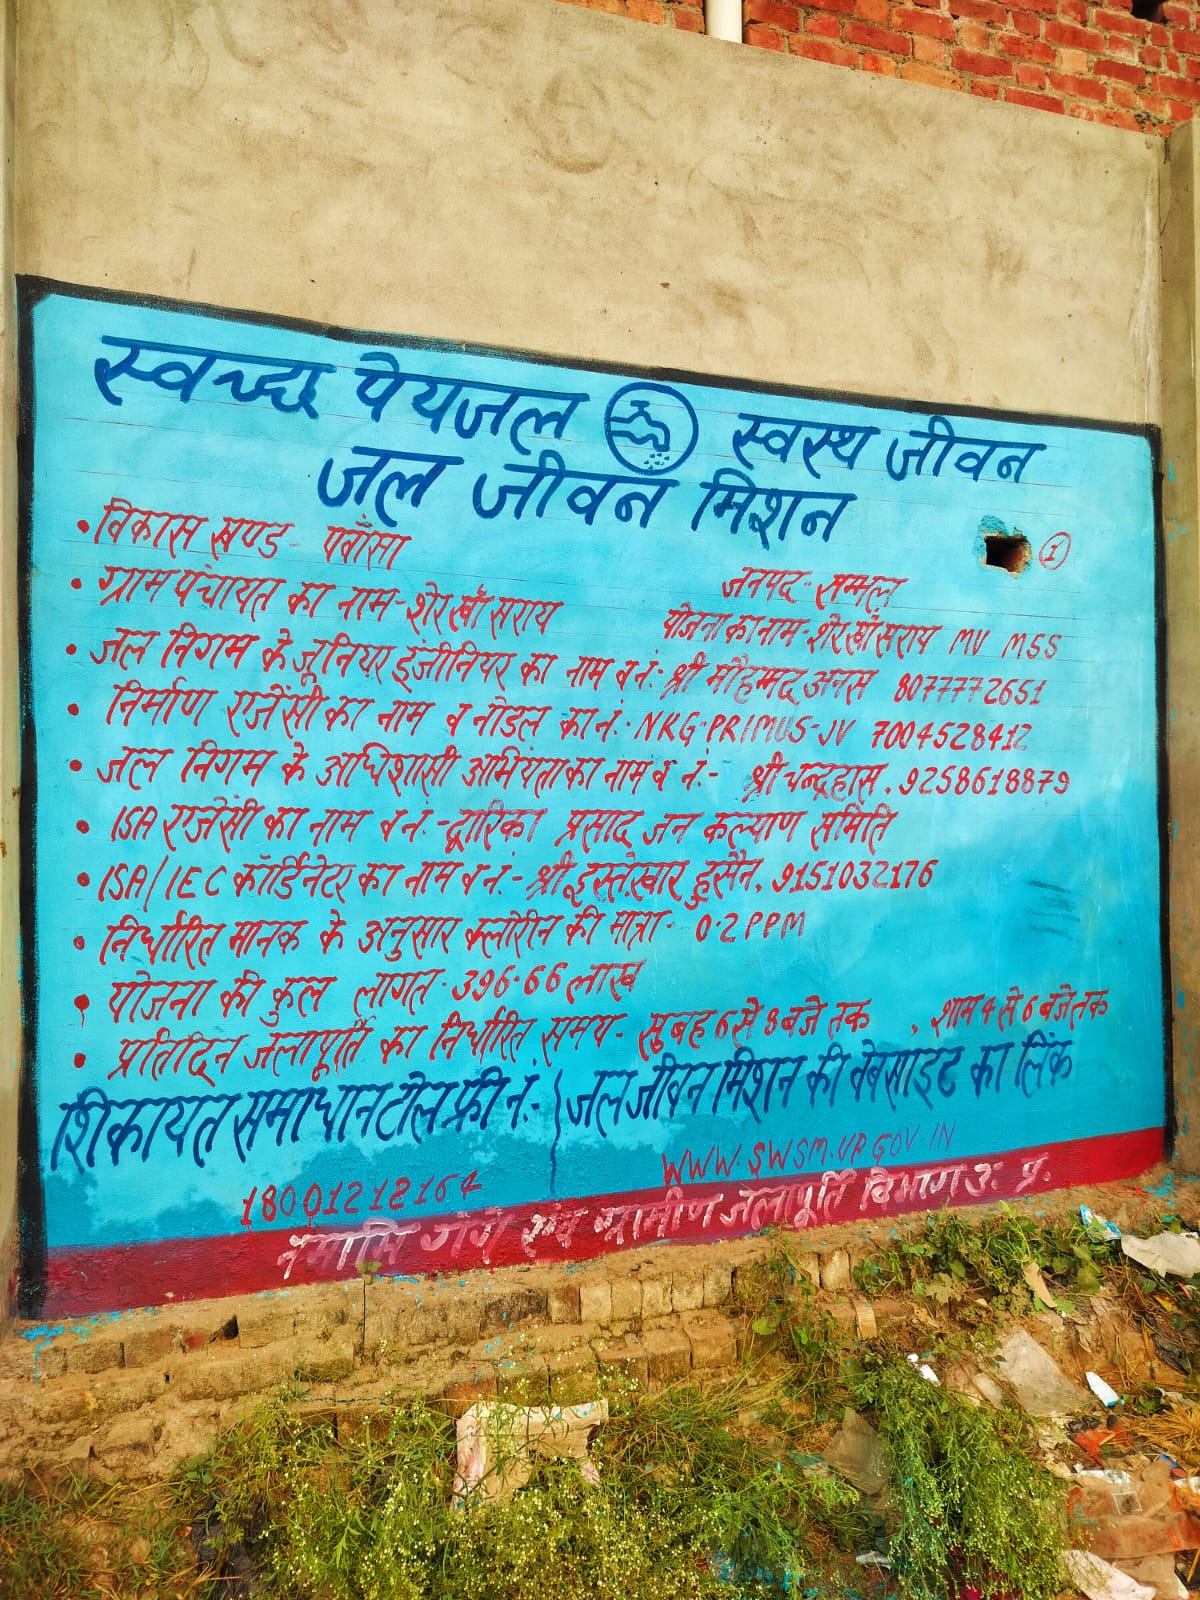 स्वच्छ पेयजल स्वस्थ जीवन
जल जीवन मिशन
• विकास खण्ड - पवाँसा जनपद - सम्भल
1
• ग्राम पंचायत का नाम - शेर खाँ सराय योजना का नाम - शेर खाँ सराय MV MSS
• जल निगम के जूनियर इंजीनियर का नाम व नं. - श्री मौहम्मद अनस 8077772651
• निर्माण एजेंसी का नाम व नोडल का नं. - NKG-PRIMUS-JV 7004528412
• जल निगम के अधिशासी अभियंता का नाम व नं. - श्री चन्द्रहास. 9258618879
• ISA एजेंसी का नाम व नं. - द्वारिका प्रसाद जन कल्याण समिति
• ISA/IEC कॉर्डिनेटर का नाम व नं. - श्री इस्तेखार हुसैन. 9151032176
• निर्धारित मानक के अनुसार क्लोरीन की मात्रा - 0.2 PPM
• योजना की कुल लागत - 396.66 लाख
• प्रतिदिन जलापूर्ति का निर्धारित समय - सुबह 6 से 8 बजे तक , शाम 4 से 6 बजे तक
शिकायत समाधान टोल फ्री नं. - } जल जीवन मिशन की वेबसाइट का लिंक
18001212164 WWW.SWSM.UP.GOV.IN
नमामि गंगे एवं ग्रामीण जलापूर्ति विभाग उ. प्र.